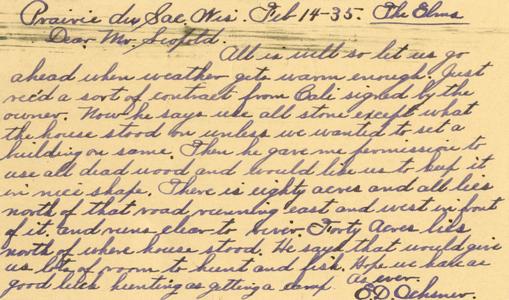 Prairie du Sac, Wis. Feb 14-35. The Elms
Dear Mr. Leopold.
All is well so let us go
ahead when weather gets warm enough. Just
rec'd a sort of contract from Cali signed by the
owner. Now he says use all stone except what
the house stood on unless we wanted to set a
building on same. Then he gave me permission to
use all dead wood and would like us to keep it
in nice shape. There is eighty acres and all lies
north of that road running east and west in front
of it. and runs clear to river. Forty Acres lies
north of where house stood. He says that would give
us lots of room to hunt and fish. Hope we have as
good luck hunting as getting a camp. As ever.
E.D. Ochsner.